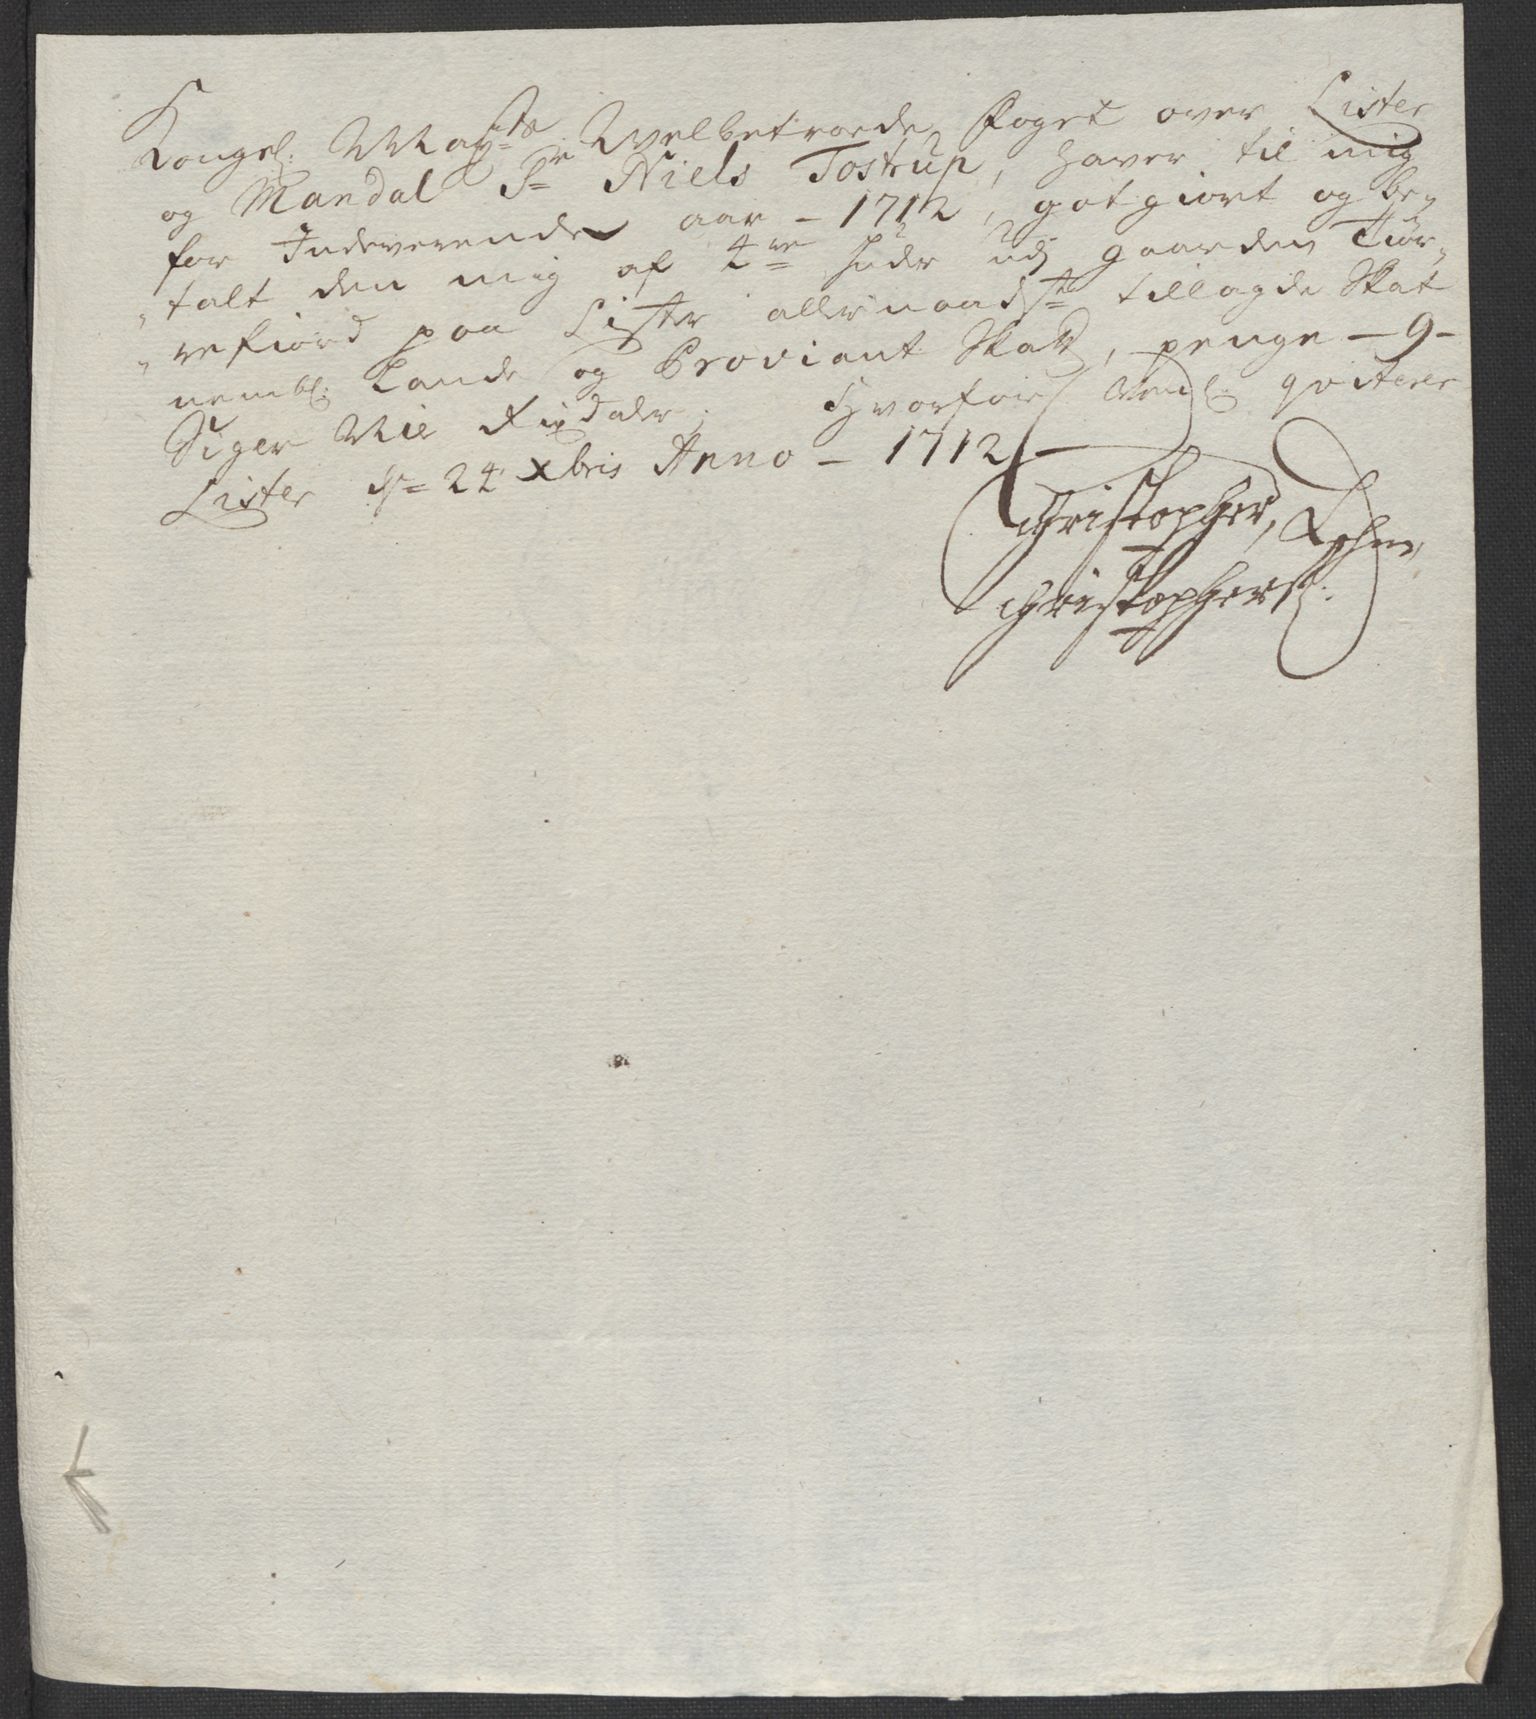 Kongel: Maysts Welbetroede Foget over Lister
og Mandal Sr Niels Tostrup, haver til mig
for Indeverende aar - 1712, gotgiort og be-
talt den mig af 4re huder udj gaarden Tiør-
refiord paa Lister allernaadste tillagde Skat
nembl: Lands og Proviant Skatt, penge - 9 -
Siger Nie Rixdaler, Hvorfore Vendl: qviterer
Lister dn 24 Xbris Anno - 1712 -
Christopher Lehm
Christophers: